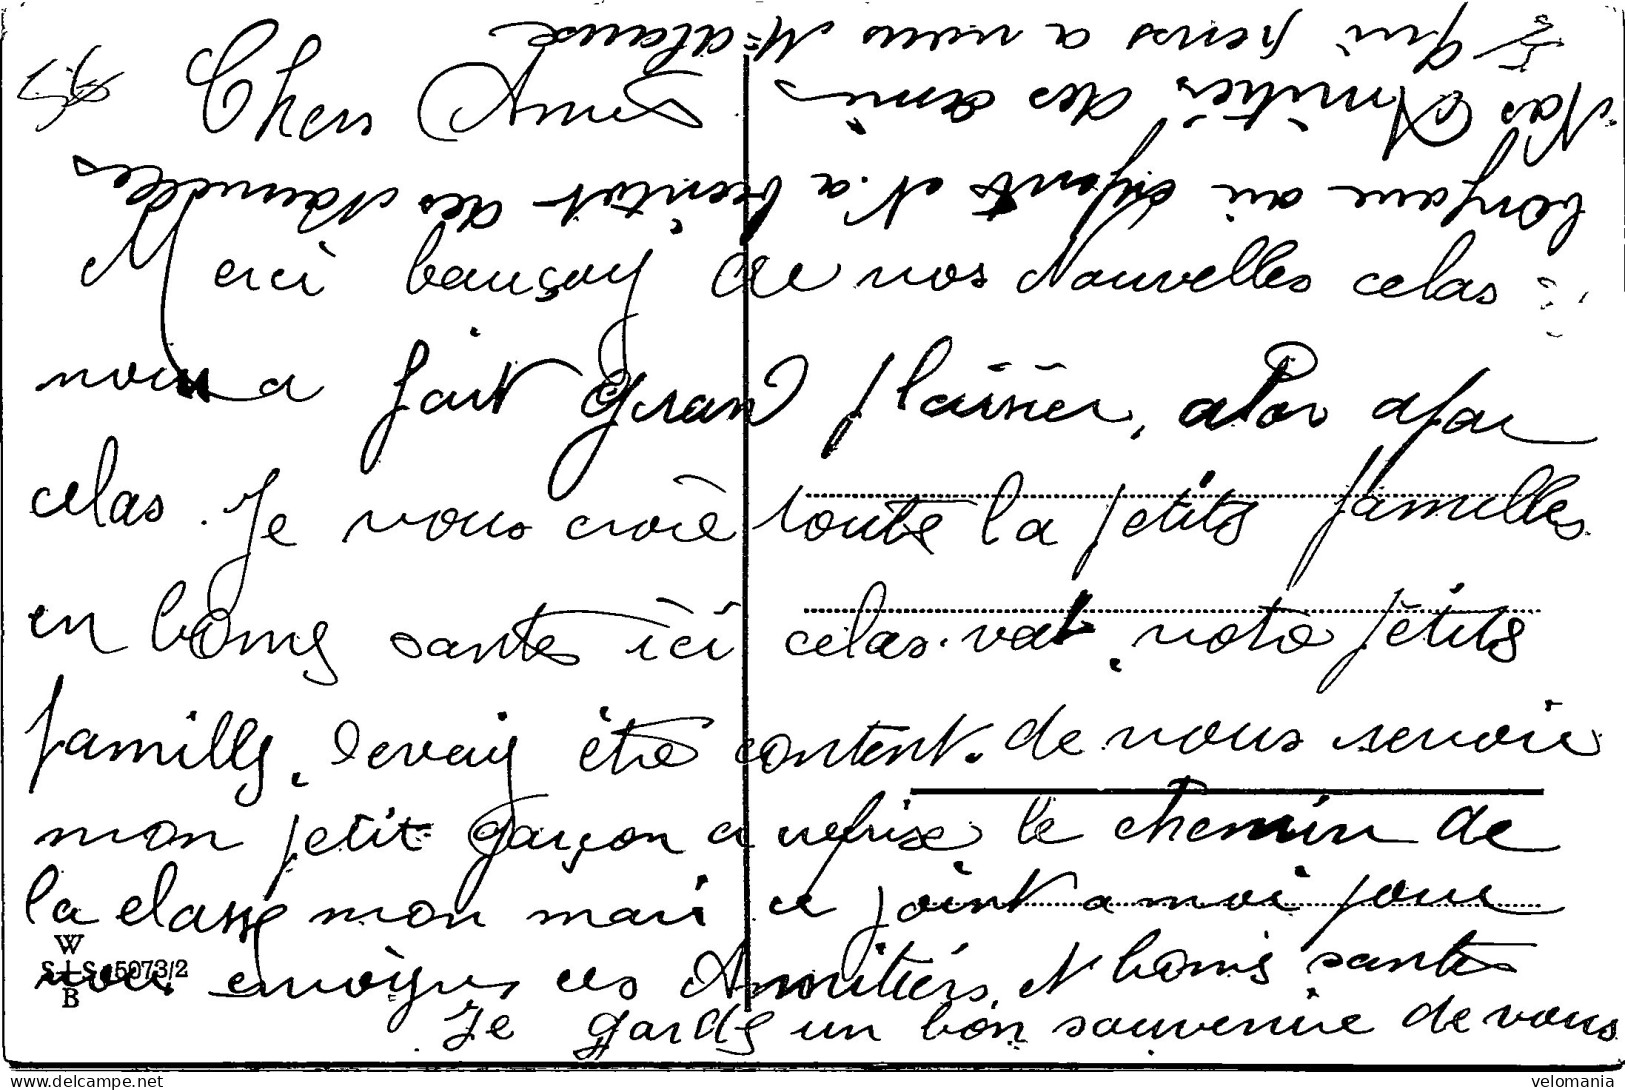 Chers Amis
Merci bauçouj de vos Nouvelles celas
nous a fait grand plaisier, alor apar
celas. Je vous croiè toute la petits familles
en bonns santes ici celas. vat, notre petits
familly, devaij être content. de vous revoir
mon petit garçon a reprise le chemin de
la classe mon mari ce joint a moi pour
vous envoiyer ces Amnitiérs, et bonns santes
Je garde un bon souvenire de vous
bonjour au enfants et a bientot des Nouvelles
Nos Amitiés des amis
qui pens a vous
W
S+S 15073/2
B
www.delcampe.net
velomania